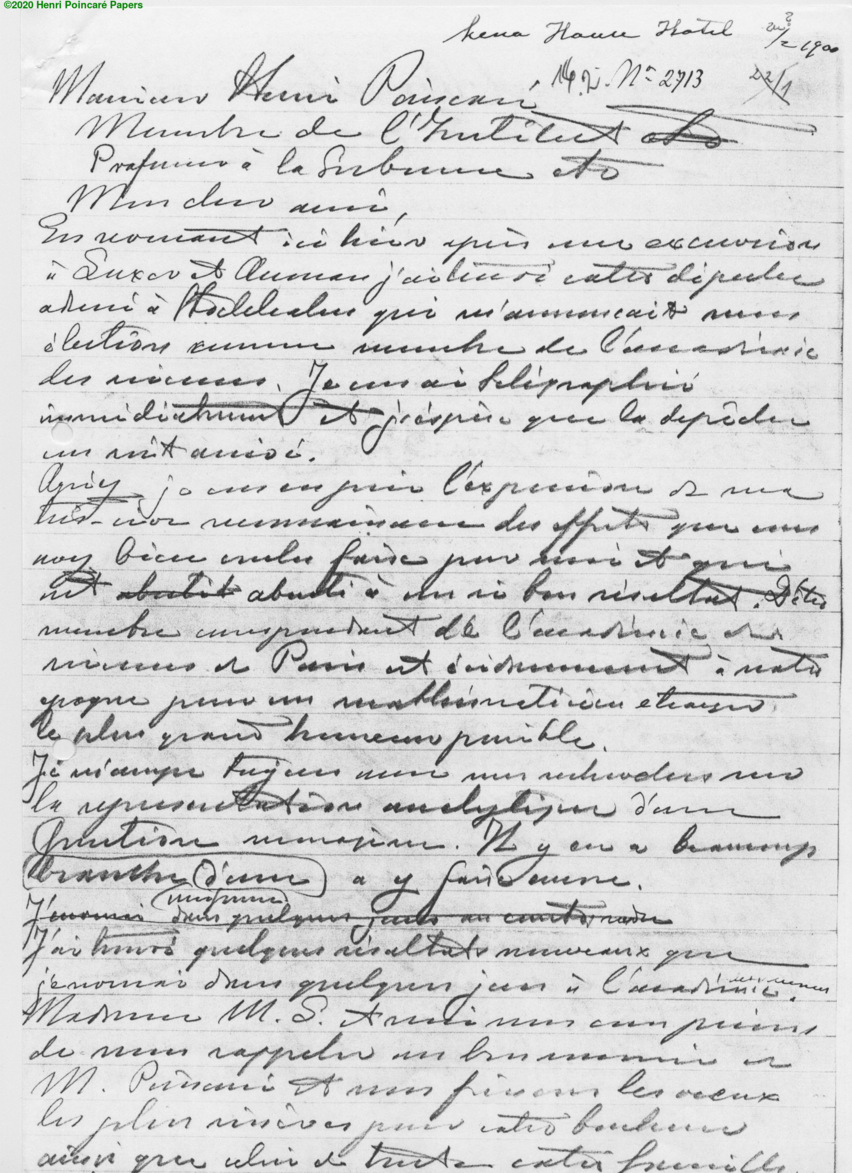 ©2020 Henri Poincaré Papers
Mena House Hotel
1900
M. L. Nº 2713
22/1
Monsieur Henri Poincaré
Membre de l'Institut etc
Professeur à la Sorbonne etc
Mon cher ami,
En revenant ici hier après une excursion
à Luxor et Assouan j'ai trouvé votre dépêche
adressé à Stockholm qui m'annonçait mon
élection comme membre de l'académie
des sciences. Je vous ai télégraphié
immédiatement et j'espère que la dépêche
vous soit arrivé.
Agréez je vous en prie l'expression de ma
très-vive reconnaissance des efforts que vous
avez bien voulu faire pour moi et qui
ont aboutit abouti à un si bon résultat. D'être
membre correspondant de l'académie des
sciences de Paris est évidemment à notre
époque pour un mathématicien étranger
le plus grand honneur possible.
Je m'occupe toujours avec mes recherches sur
la représentation analytique d'une
branche (d'une) fonction monogène. Il y en a beaucoup
a y faire encore.
J'enverrai dans quelques jours au
J'ai trouvé quelques résultats nouveaux que
j'enverrai dans quelques jours à l'académie.
Madame M. L. et moi nous vous prions
de nous rappeler au bon souvenir de
M. Poincaré et nous faisons les vœux
les plus sincères pour votre bonheur
ainsi que celui de toute votre famille